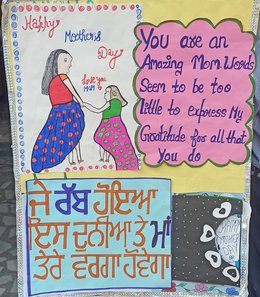 Happy
Mothers
Day
I love you
MOM
You are an
Amazing Mom. Words
Seem to be too
Little to express My
Gratitude for all that
You do
ਜੇ ਰੱਬ ਹੋਇਆ
ਇਸ ਦੁਨੀਆ ਤੇ ਮਾਂ
ਤੇਰੇ ਵਰਗਾ ਹੋਵੇਗਾ